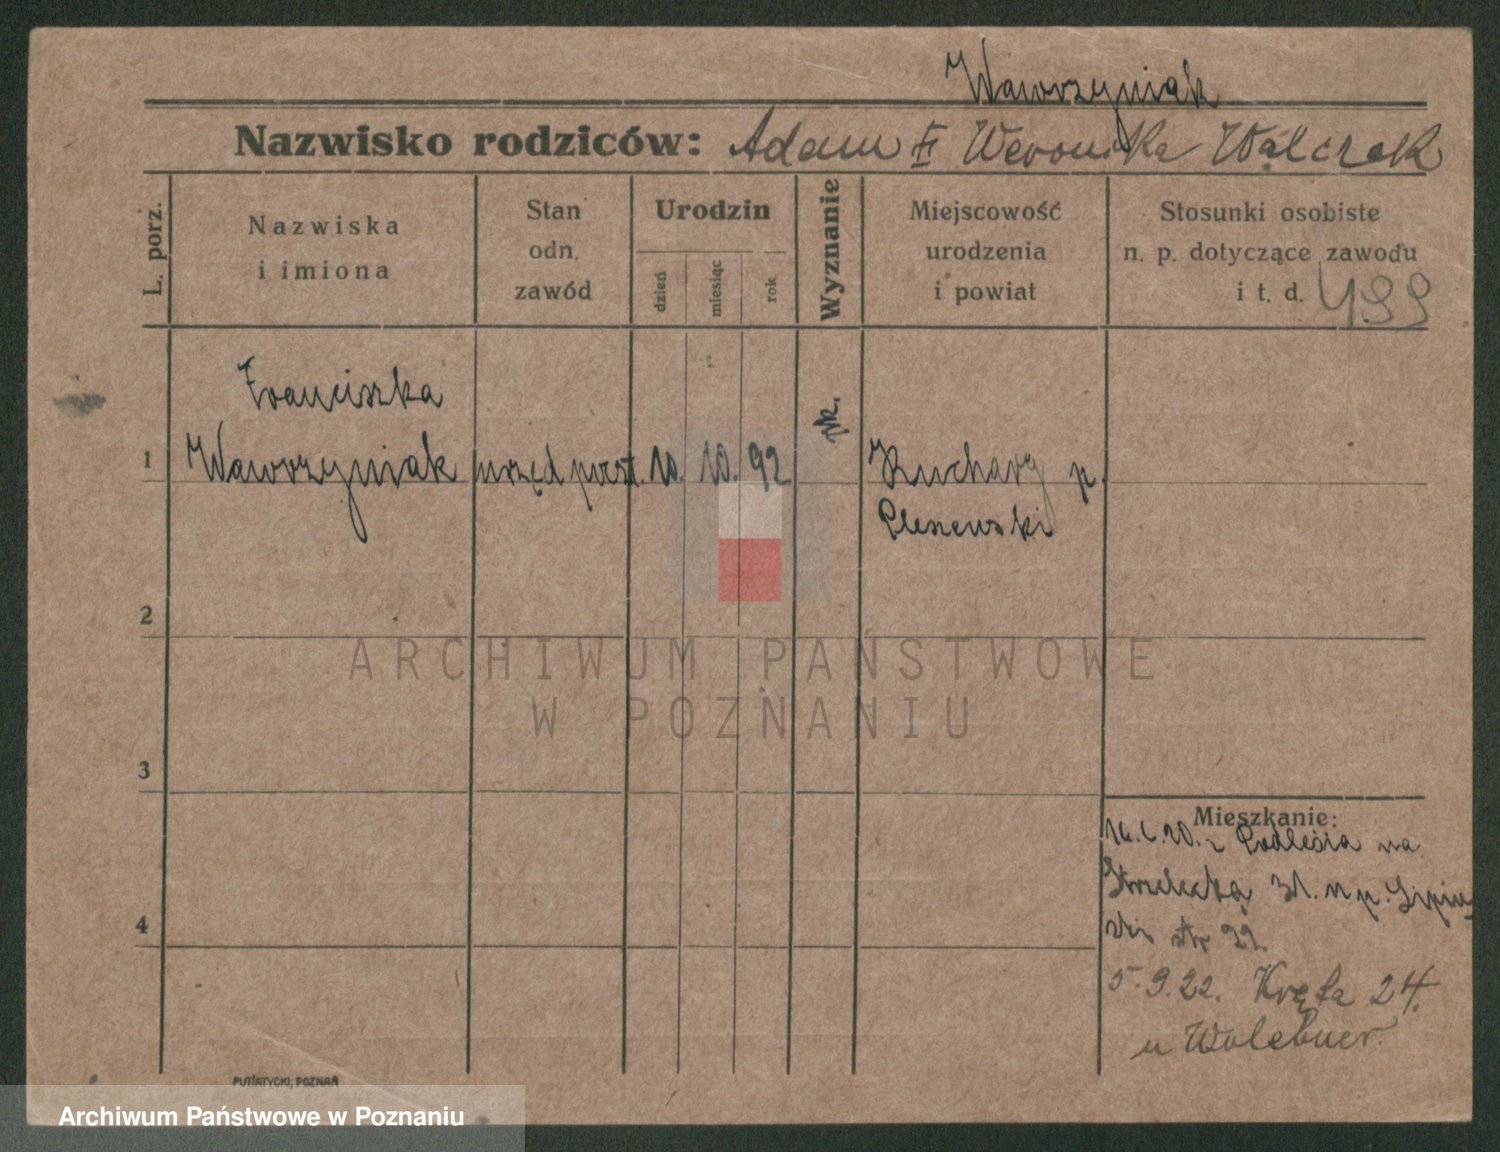 Wawrzyniak
Nazwisko rodziców: Adam Weronika Walczak
L. porz.
Nazwiska
i imiona
Stan
odn.
zawód
Urodzin
dzień
miesiąc
rok
Wyznanie
Miejscowość
urodzenia
i powiat
Stosunki osobiste
n. p. dotyczące zawodu
i t. d. 499
Franciszka
1 Wawrzyniak urzęd poczt. 10. 10. 92 rk. Kuchary p.
Pleszewski
2
ARCHIWUM PAŃSTWOWE
W POZNANIU
3
Mieszkanie:
20. z Podlesia na
Strzelecką 31.
4
str 22.
5.9.22. Kręta 24.
u
PUTIATYCKI, POZNAŃ
Archiwum Państwowe w Poznaniu